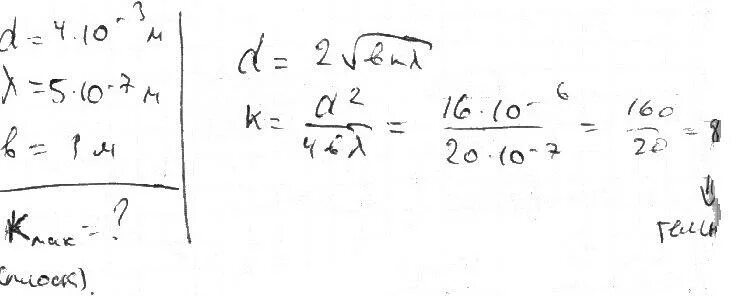 d = 4·10⁻³ м
λ = 5·10⁻⁷ м
b = 1 м
Kмак = ?
d = 2√bkλ
k = d²/4bλ = 16·10⁻⁶/20·10⁻⁷ = 160/20 = 8
↓